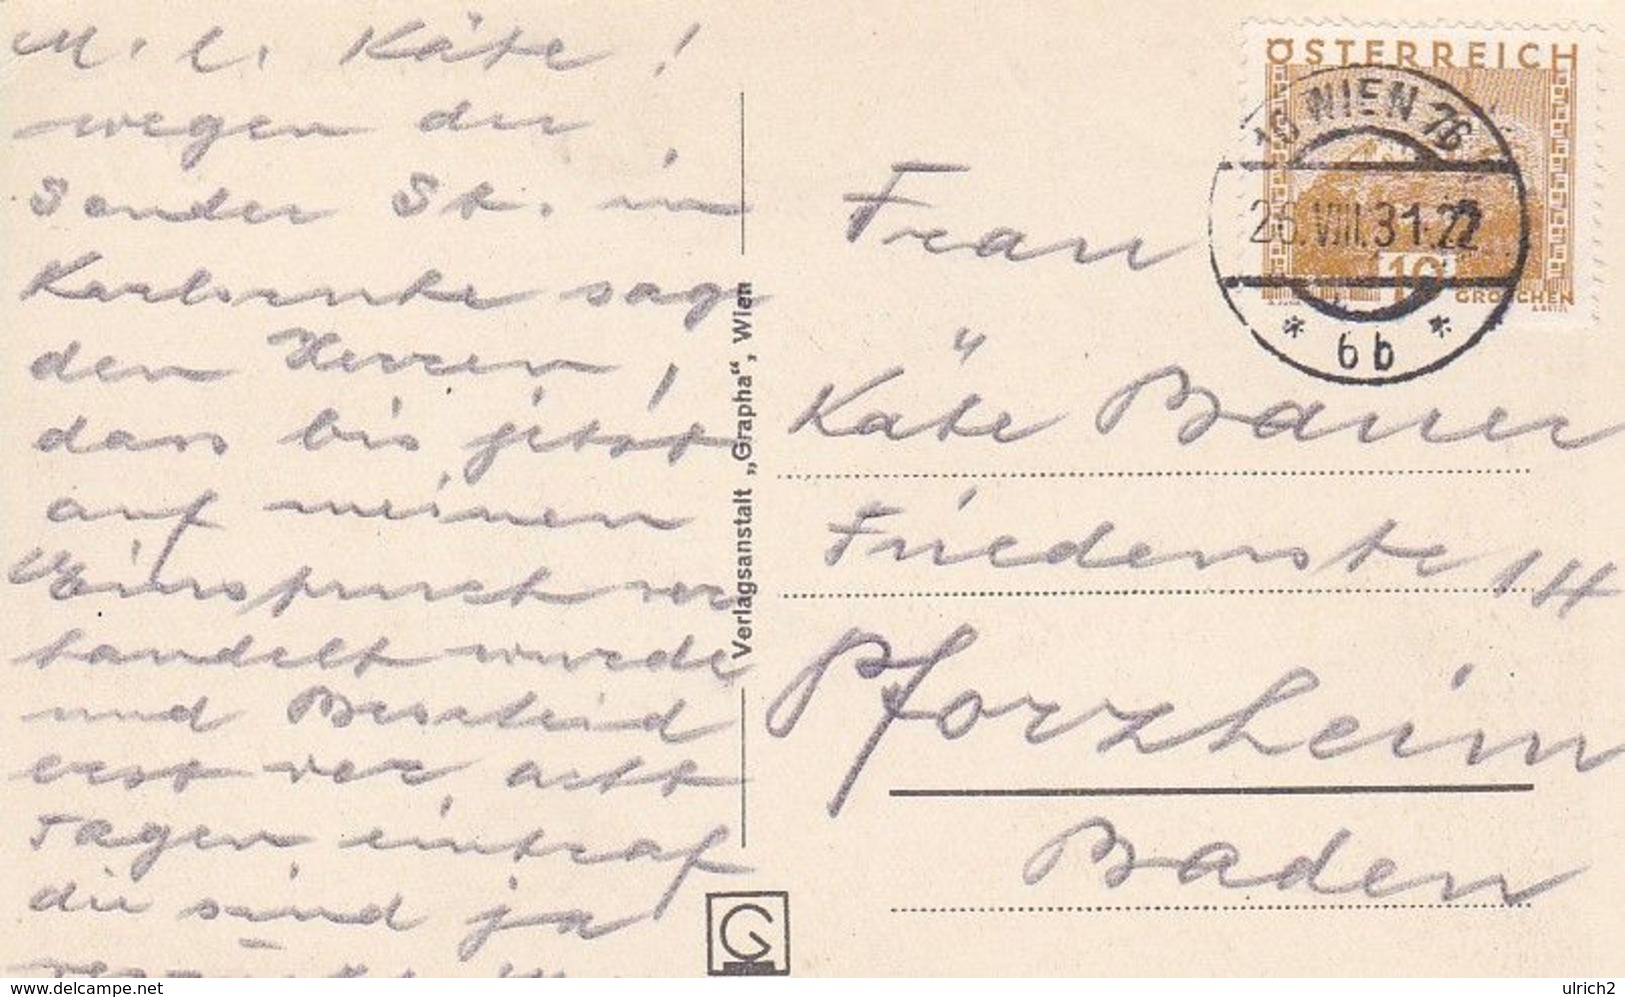 M. l. Käte!
wegen der
Sonder St. in
Karlsruhe sag
den Herren,
dass bis jetzt
auf meinen
Einspruch ver
handelt wurde
und Bescheid
erst vor acht
Tagen eintraf
die sind ja
Verlagsanstalt „Grapha“, Wien
G
ÖSTERREICH
10
GROSCHEN
WIEN 76
26.VIII.31.22
* 6b *
Frau
Käte Bauer
Friedenstr 114
Pforzheim
Baden
www.delcampe.net
ulrich2